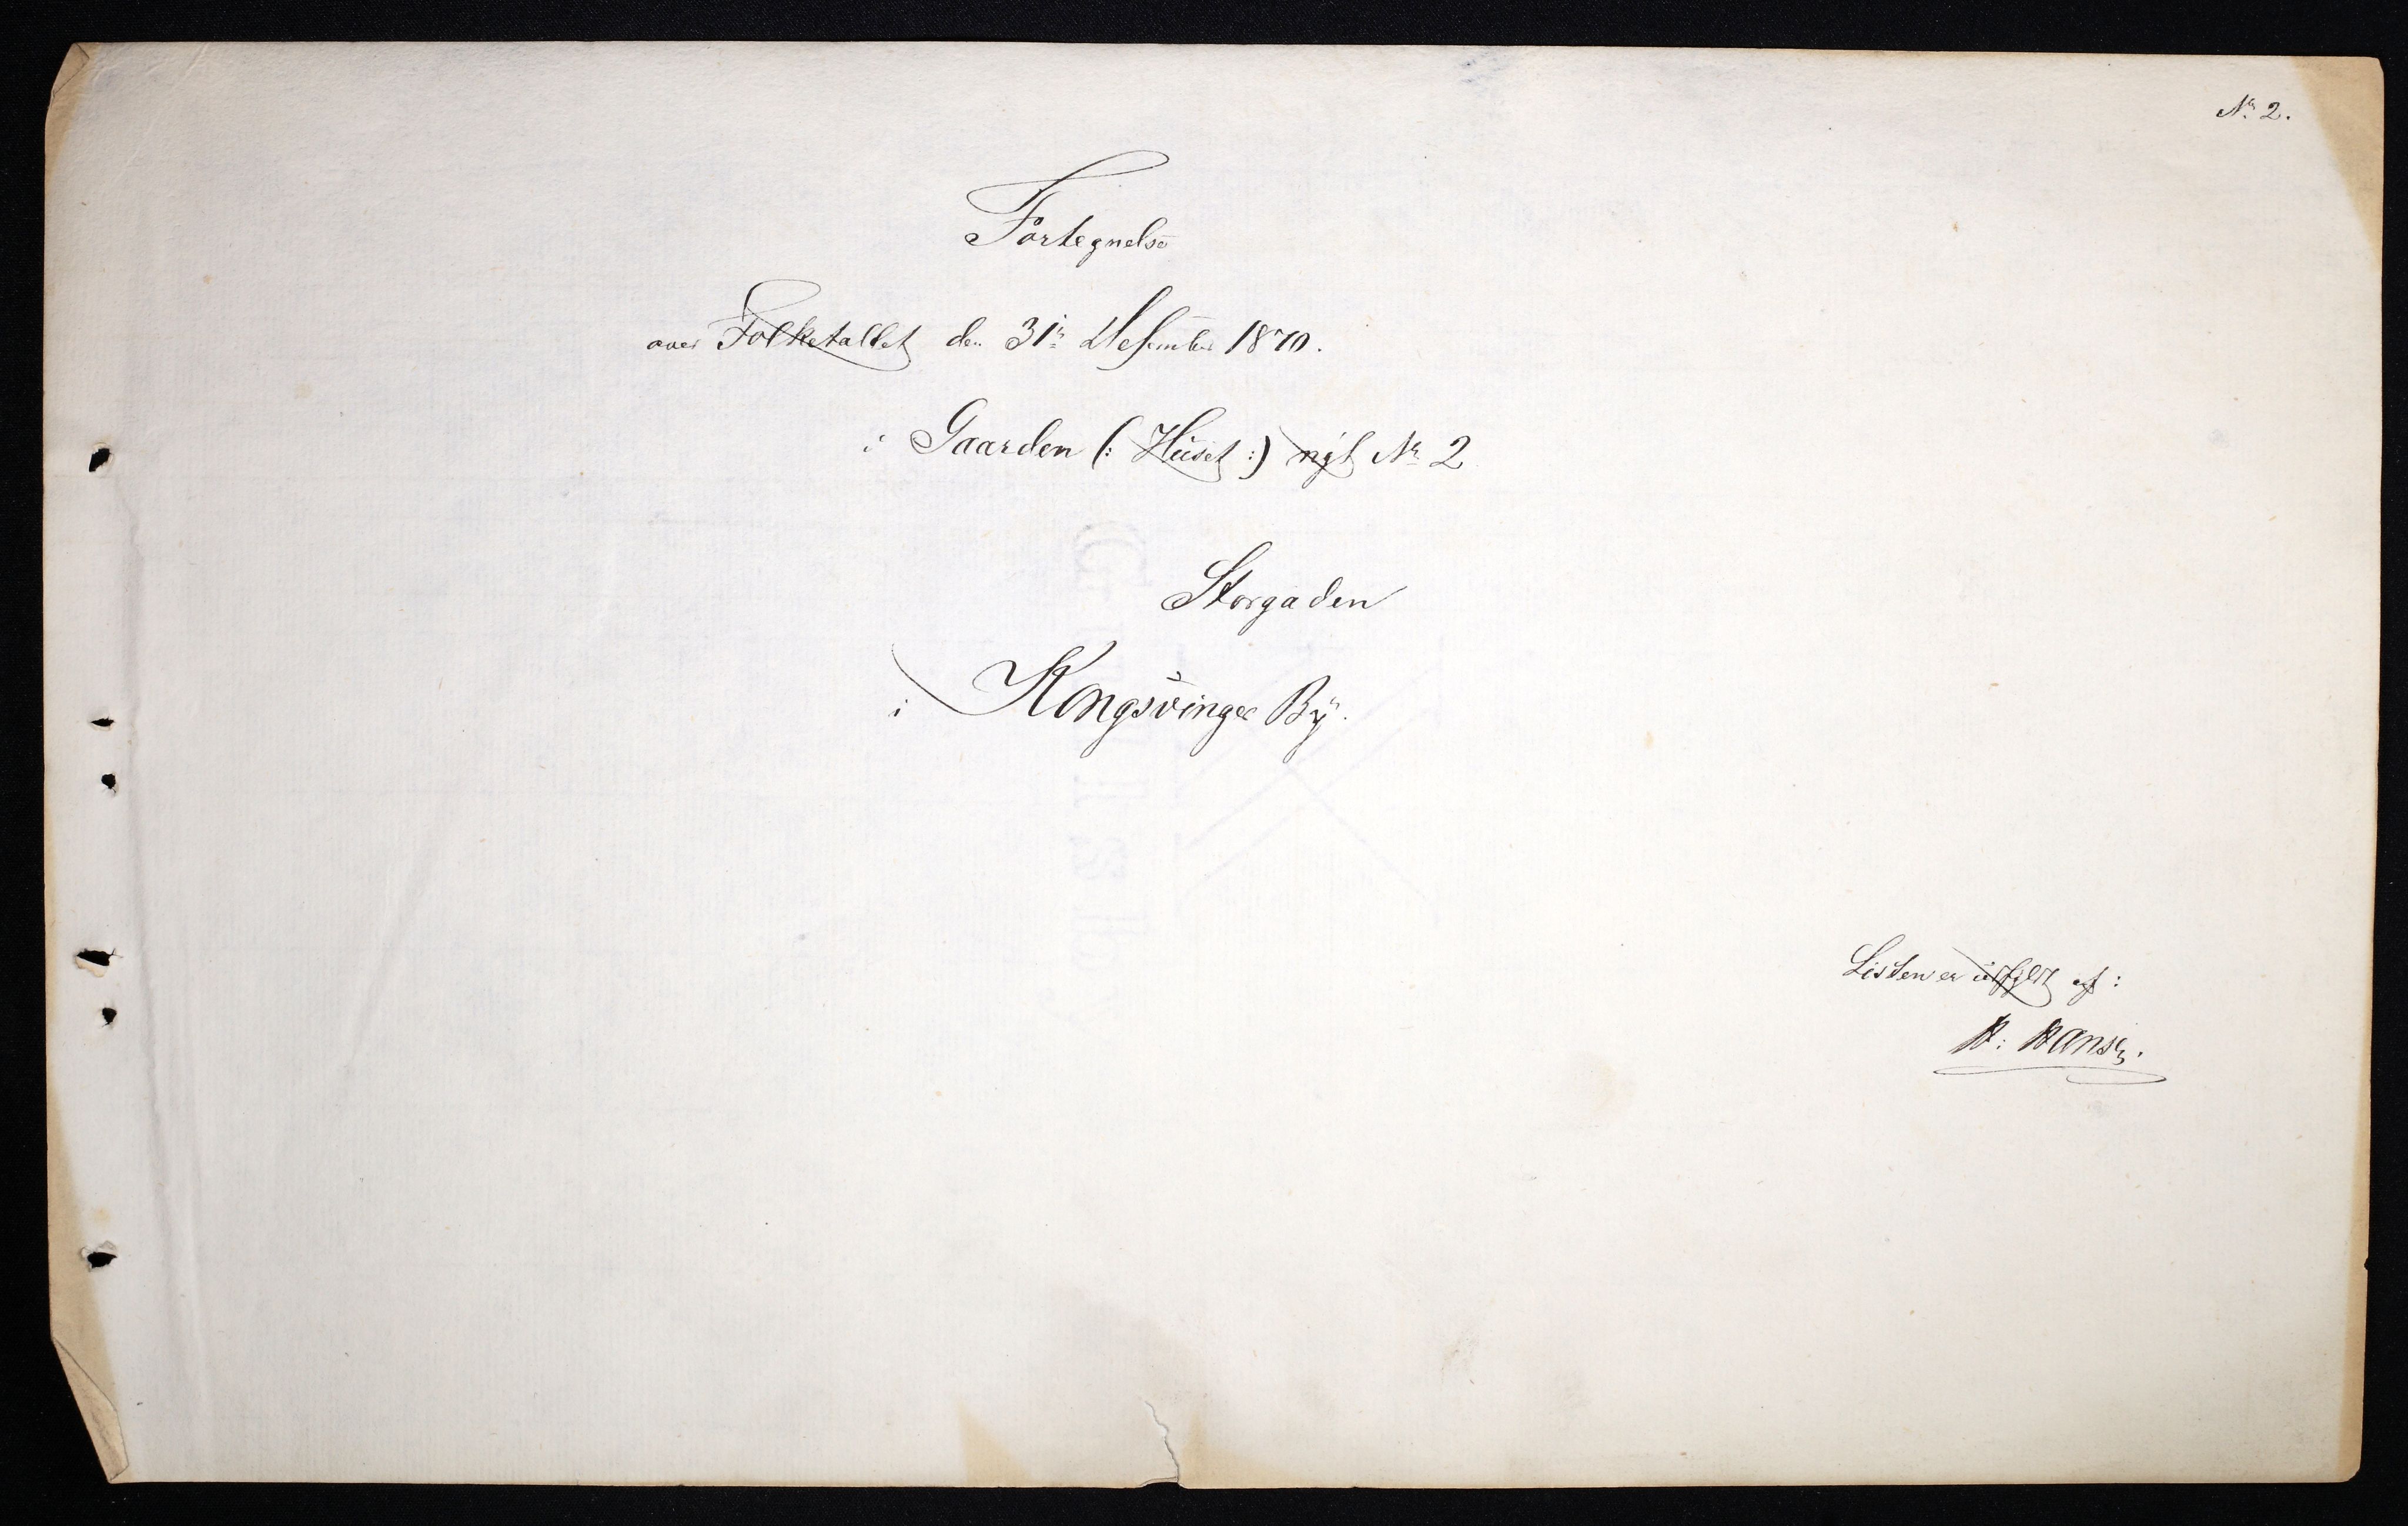 No 2.
Fortegnelse
over Folketallet den 31te Desember 1870.
i Gaarden (: Huset :) nyt No 2
Storgaden
i Kongsvinger By.
Listen er udfyldt af:
H: Hansen.